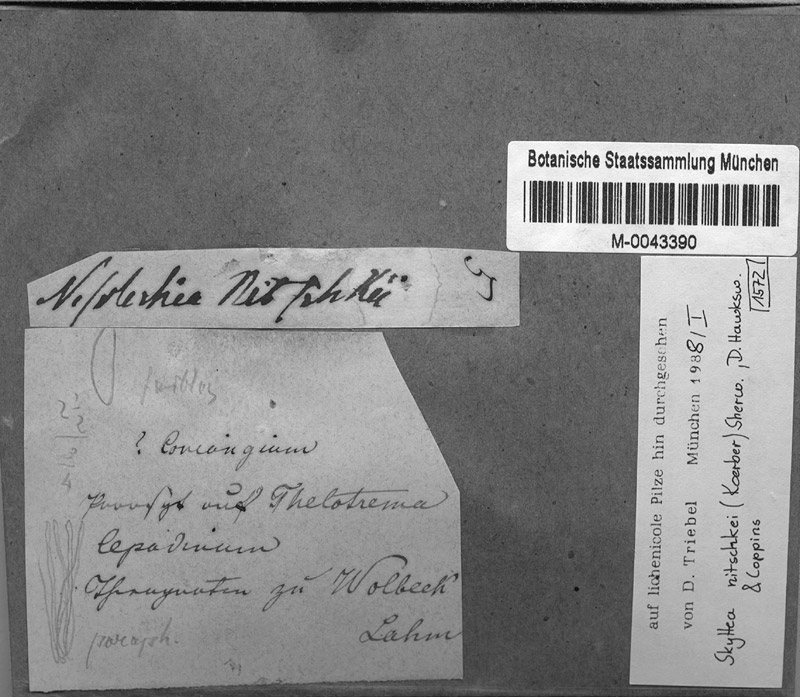 Botanische Staatssammlung München
M-0043390
Nitschkii
farblos
? Coniangium
Parasyt auf Thelotrema
lepadinum
zu Wolbeck
Lahm
paraph.
auf lichenicole Pilze hin durchgesehen
von D. Triebel München 1988/I
Skyttea nitschkei (Koerber) Sherw., D. Hawksw.
& Coppins
1572